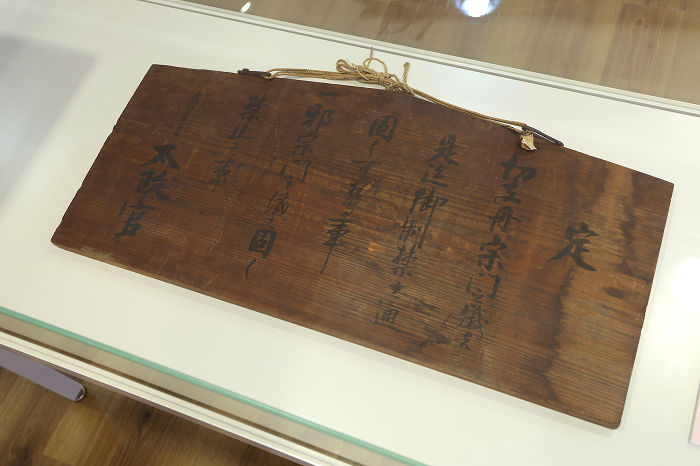 定
切支丹宗門之儀者
是迄御制禁之通
固く可相守事
一邪宗門之儀固く
禁止之事
太政官